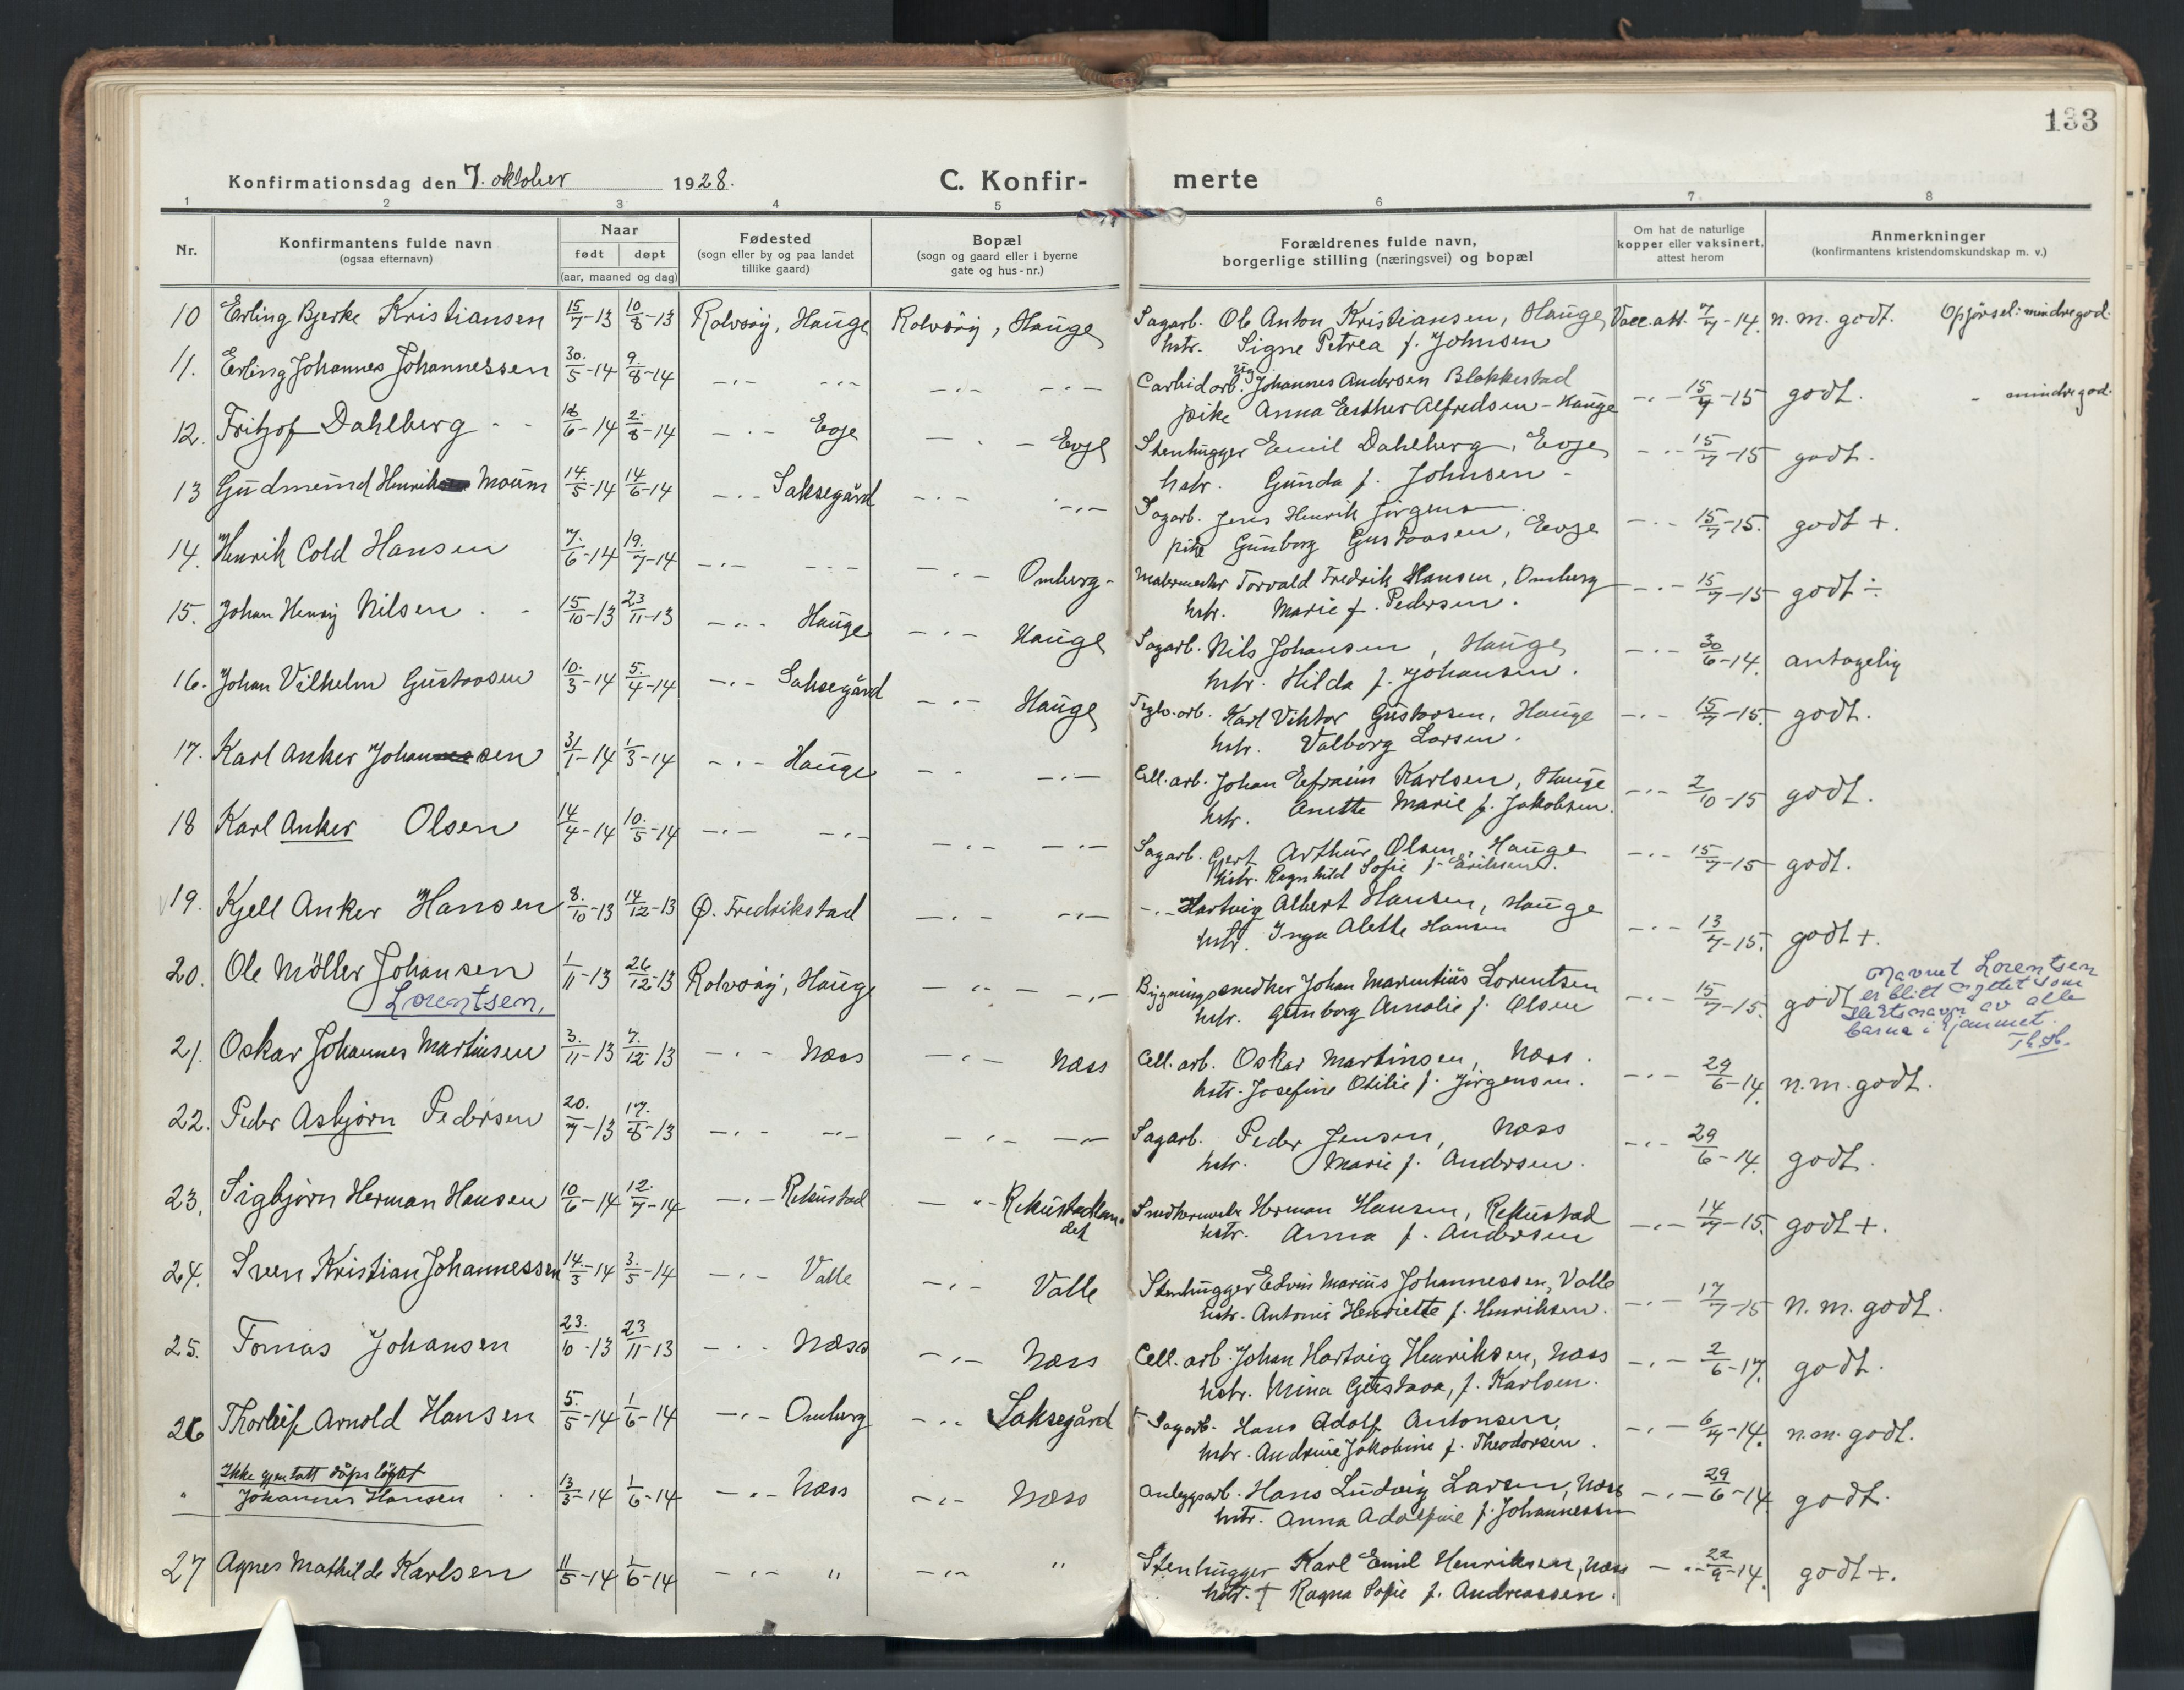 133
Konfirmationsdag den 7. oktober 1928. C. Konfir- merte
1 2 3 4 5 6 7 8
Nr. Konfirmantens fulde navn (ogsaa efternavn) Naar født døpt (aar, maaned og dag) Fødested (sogn eller by og paa landet tillike gaard) Bopæl (sogn og gaard eller i byerne gate og hus-nr.) Forældrenes fulde navn, borgerlige stilling (næringsvei) og bopæl Om hat de naturlige kopper eller vaksinert, attest herom Anmerkninger (konfirmantens kristendomskundskap m. v.)
10 Erling Bjerke Kristiansen 15/7-13 10/8-13 Rolvsøy, Hauge Rolvsøy, Hauge Sagarb. Ole Anton Kristiansen, Hauge Vacc.att. 7/7-14. n. m. godt. Opførsel: mindre god.
hstr. Signe Petrea f. Johnsen
11. Erling Johannes Johannessen 30./5-14 9./8-14 -.- -.- -.- -.- Carbidarb. Johannes Andersen Blakkestad -.- 15/7-15 godt. " mindre god.
pike Anna Esther Alfredsen - Hauge
12. Fritjof Dahlberg - - 18/6-14 2./8-14 -.- Evje -.- Evje Stenhugger Emil Dahlberg, Evje -.- 15/7-15 godt.
hstr. Gunda f. Johnsen -
13 Gudmund Henrik Moum 14./5-14 14/6-14 -.- Saksegård -.- -.- Sagarb. Jens Henrik Jørgensen -.- 15/7-15. godt +.
pike Gunborg Gustavsen, Evje
14. Henrik Cold Hansen 7./6-14 19./7-14 -.- -.- -.- Omberg- Malermester Torvald Fredrik Hansen, Omberg -.- 15/7-15 godt ÷
hstr. Marie f. Pedersen.
15. Johan Henry Nilsen . - 15/10-13 23/11-13 -.- Hauge -.- Hauge Sagarb. Nils Johansen, Hauge -.- 30/6-14. antagelig
hstr. Hilda f. Johansen.
16. Johan Vilhelm Gustavsen 10./3-14 5./4-14 -.- Saksegård -.- Hauge Teglv.arb. Karl Viktor Gustavsen, Hauge -.- 15/7-15. godt.
hstr. Valborg Larsen.
17. Karl Anker Johansen 31/1-14 1/3-14 -.- Hauge -.- -.- Cell. arb. Johan Efraim Karlsen, Hauge -.- 2/10-15 godt.
hstr. Anette Marie f. Jakobsen.
18 Karl Anker Olsen 14/4-14 10./5-14 -.- -.- -.- -.- Sagarb. Gert Arthur Olsen, Hauge -.- 15/7-15 godt.
hstr. Ragnhild Sofie f. Eriksen.
19. Kjell Anker Hansen 8./10-13 14/12-13 Ø. Fredrikstad -.- -.- -.- Hartvig Albert Hansen, Hauge -.- 13/7-15. godt +.
hstr. Inga Alette Hansen
20. Ole Møller Johansen 1/11-13 26/12-13 Rolvsøy, Hauge -.- -.- Bygningssnedker Johan Marentius Lorentsen -.- 15/7-15. godt
Lorentsen.
hstr. Gunborg Amalie f. Olsen
Navnet Lorentsen
er blitt
slektsnavn av alle
barna i hjemmet.
21. Oskar Johannes Martinsen 3./11-13 7./12-13 -.- Næss -.- Næss Cell. arb. Oskar Martinsen, Næss. -.- 29/6-14. n. m. godt.
hstr. Josefine Otilie f. Jørgensen.
22. Peder Asbjørn Pedersen 20./7-13 17./8-13 -.- -.- -.- -.- Sagarb. Peder Jensen, Næss -.- 29/6-14. godt.
hstr. Marie f. Andersen.
23. Sigbjørn Herman Hansen 10/6-14 12./7-14 -.- Rekustad -.- Rekustadlan- Snedkermester Herman Hansen, Rekustad -.- 14/7-15. godt +.
det
hstr. Anna f. Andersen
24. Sven Kristian Johannessen 14./3-14 3./5-14 -.- Valle -.- Valle Stenhugger Edvin Marius Johannessen, Valle -.- 17/7-15 n. m. godt.
hstr. Antonie Henriette f. Henriksen.
25. Tomas Johansen 23./10-13 23/11-13 -.- Næss -.- Næss Cell. arb. Johan Hartvig Henriksen, Næss -.- 2/6-17. godt.
hstr. Mina Gustava, f. Karlsen.
26 Thorleif Arnold Hansen 5./5-14 1/6-14 -.- Omberg -.- Saksegård Sagarb. Hans Adolf Antonsen, -.- 6/7-14. n. m. godt.
hstr. Andrine Jakobine f. Theodorsen.
Ikke gjentatt dåpsløftet
" Johannes Hansen 13/3-14 1/6-14 -.- Næss -.- Næss Anleggsarb. Hans Ludvig Larsen, Næss -.- 29/6-14. godt.
hstr. Anna Adolfine f. Johannessen
27 Agnes Mathilde Karlsen 11/5-14 1/6-14 -.- " -.- " Stenhugger Karl Emil Henriksen, Næss -.- 22/9-14. godt +.
hstr. † Ragna Sofie f. Andreassen.